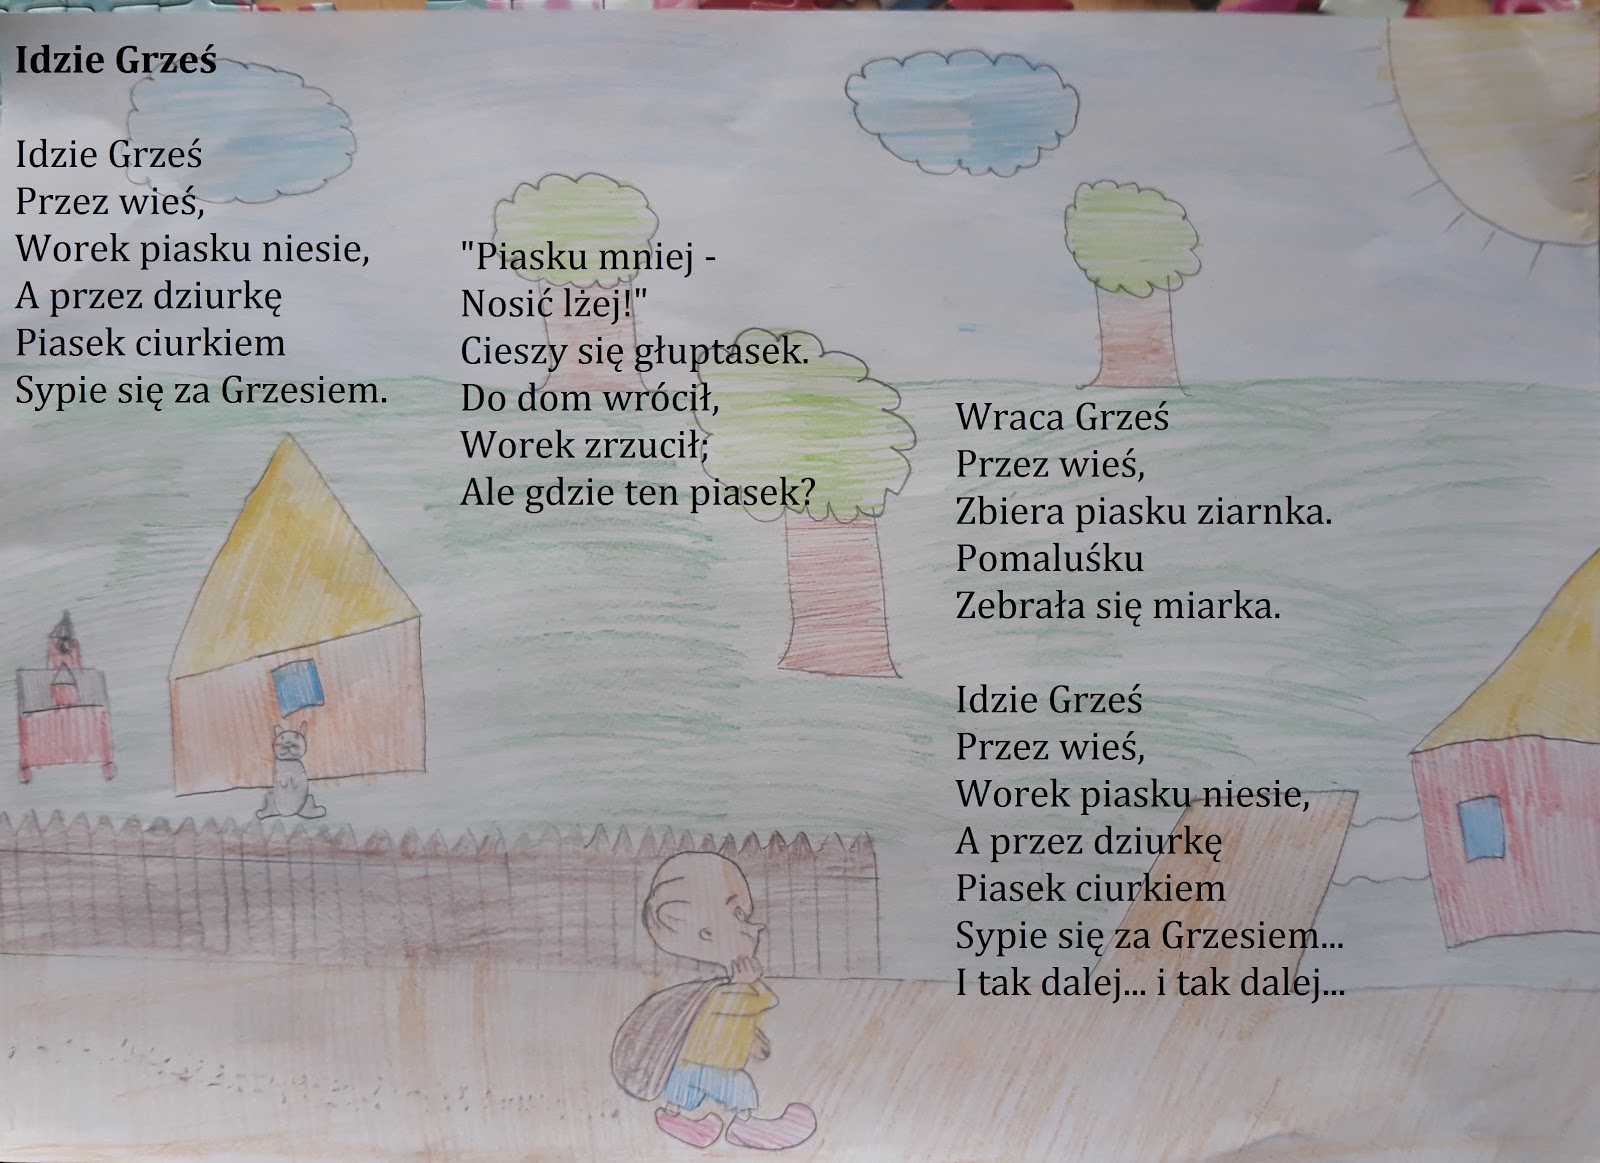 Idzie Grześ
Idzie Grześ
Przez wieś,
Worek piasku niesie,
A przez dziurkę
Piasek ciurkiem
Sypie się za Grzesiem.
"Piasku mniej -
Nosić lżej!"
Cieszy się głuptasek.
Do dom wrócił,
Worek zrzucił;
Ale gdzie ten piasek?
Wraca Grześ
Przez wieś,
Zbiera piasku ziarnka.
Pomaluśku
Zebrała się miarka.
Idzie Grześ
Przez wieś,
Worek piasku niesie,
A przez dziurkę
Piasek ciurkiem
Sypie się za Grzesiem...
I tak dalej... i tak dalej...